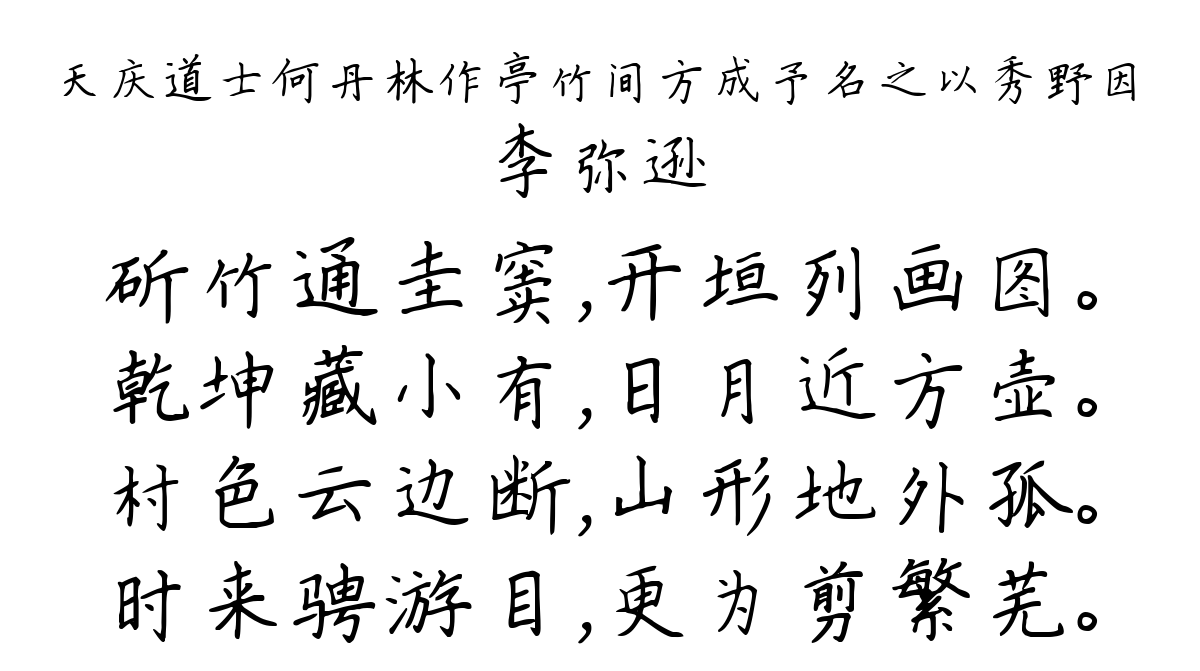 天庆道士何丹林作亭竹间方成予名之以秀野因
李弥逊
斫竹通圭窦,开垣列画图。
乾坤藏小有,日月近方壶。
村色云边断,山形地外孤。
时来骋游目,更为剪繁芜。